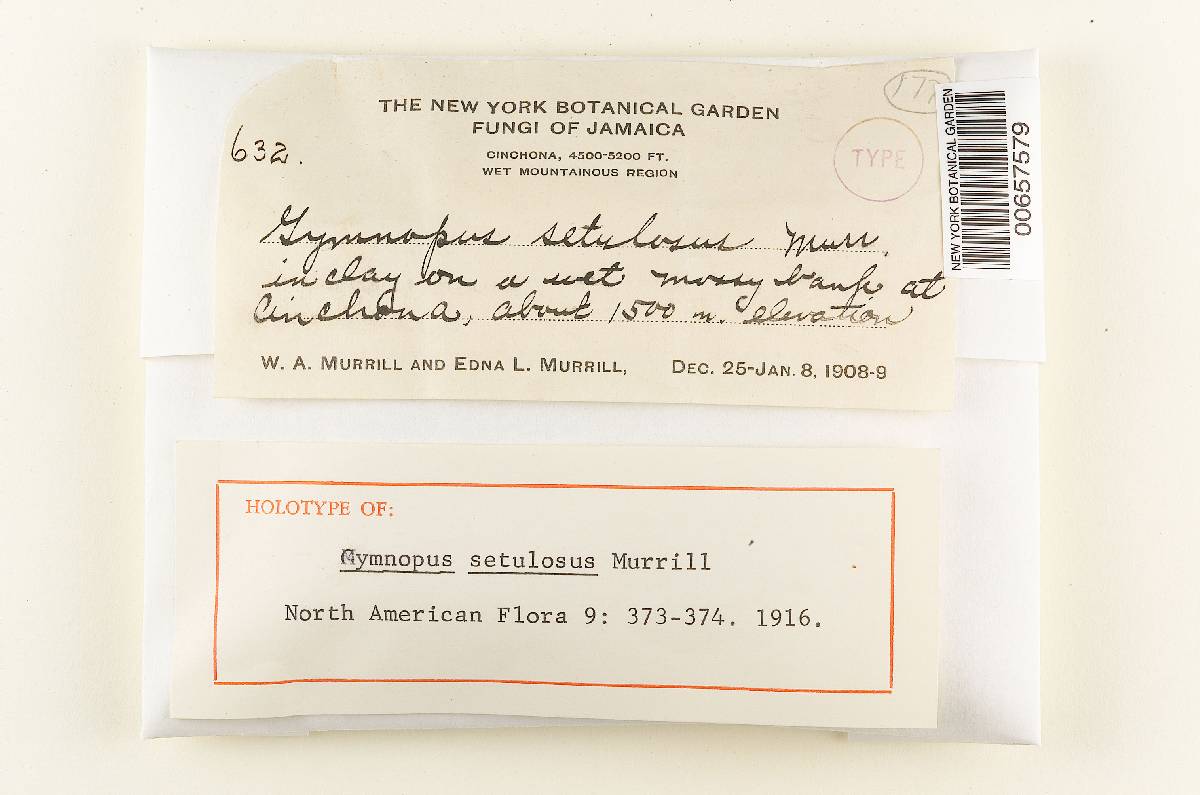 THE NEW YORK BOTANICAL GARDEN
FUNGI OF JAMAICA
632.
CINCHONA, 4500-5200 FT.
WET MOUNTAINOUS REGION
TYPE
Gymnopus setulosus Murr.
in clay on a wet mossy bank at
Cinchona, about 1500 m. elevation
W. A. MURRILL AND EDNA L. MURRILL, DEC. 25-JAN. 8, 1908-9
NEW YORK BOTANICAL GARDEN
00657579
HOLOTYPE OF:
Gymnopus setulosus Murrill
North American Flora 9: 373-374. 1916.